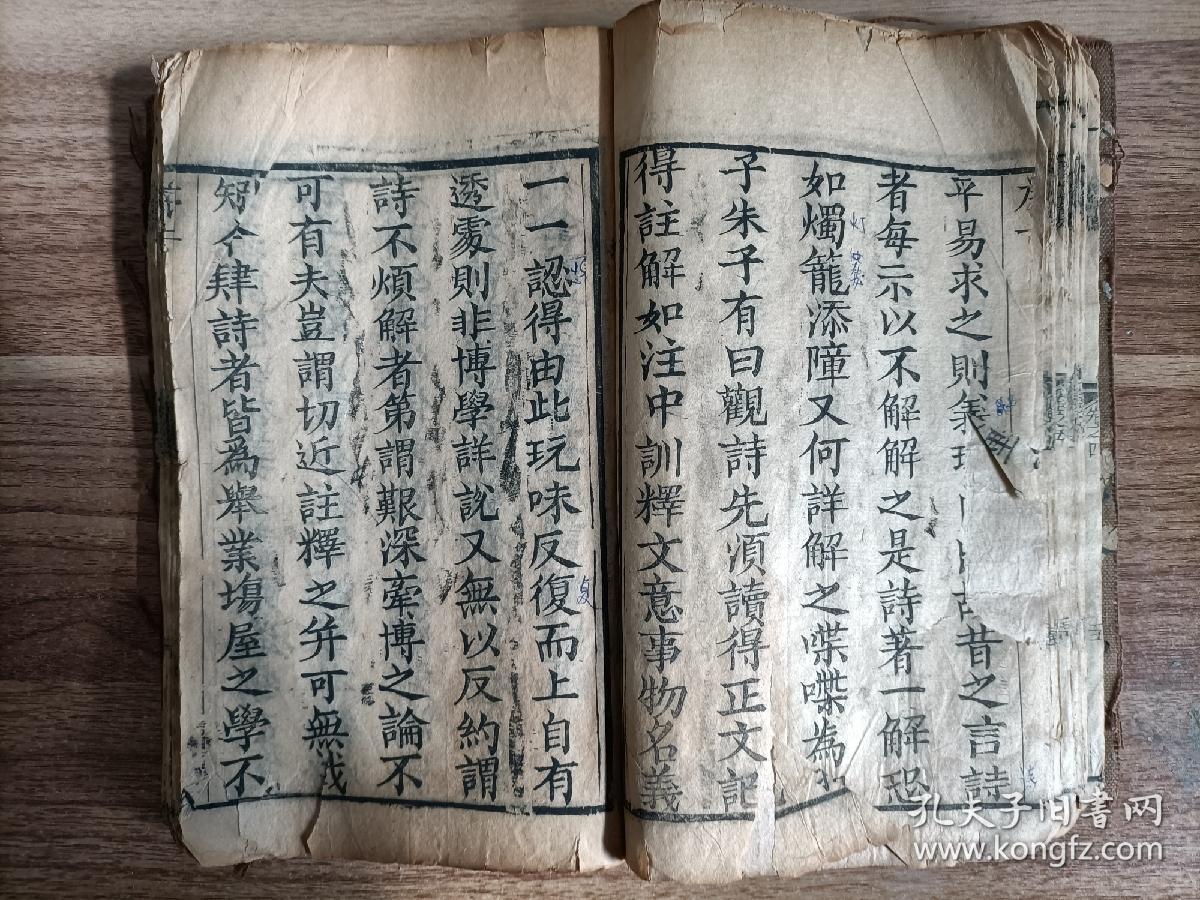 平易求之則義理昔之言詩
者每示以不解解之是詩著一解恐
如燭籠添障又何詳解之喋喋為
子朱子有曰觀詩先須讀得正文記
得註解如注中訓釋文意事物名義
一一認得由此玩味反復而上自有
透處則非博學詳說又無以反約謂
詩不煩解者第謂艱深牽博之論不
可有夫豈謂切近註釋之并可無哉
矧今肄詩者皆為舉業場屋之學不
灯
复
孔夫子旧书网
www.kongfz.com